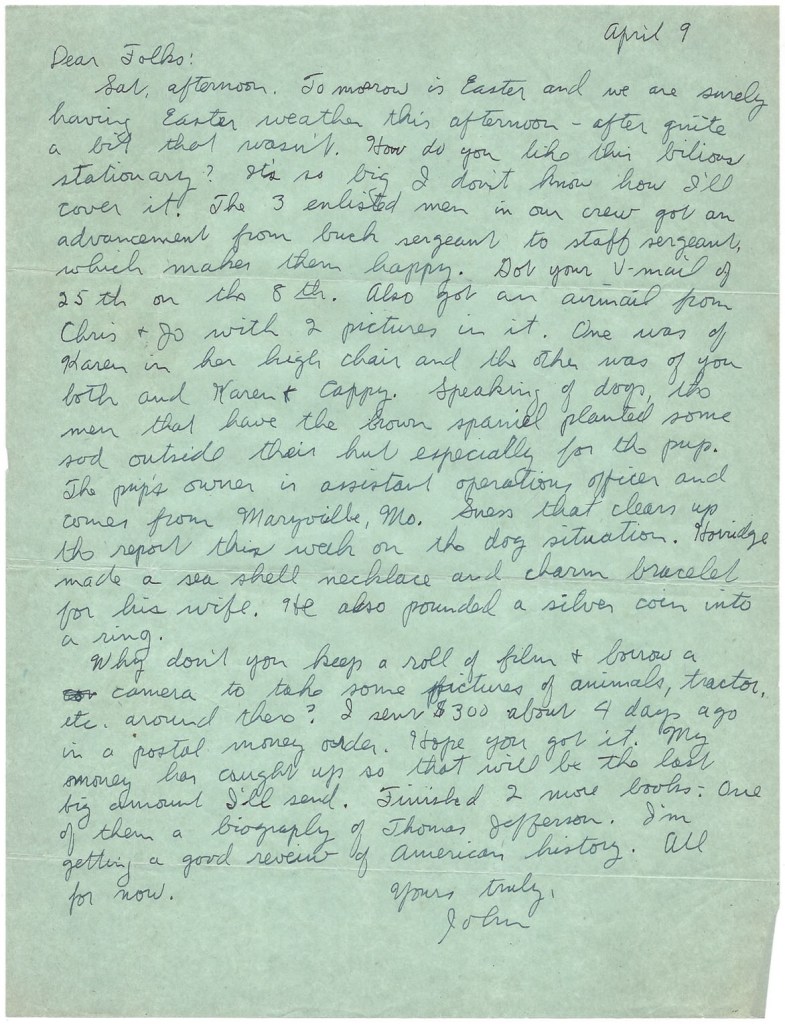 April 9
Dear Folks:
Sat. afternoon. Tomorrow is Easter and we are surely
having Easter weather this afternoon - after quite
a bit that wasn't. How do you like this bilious
stationary? It's so big I don't know how I'll
cover it. The 3 enlisted men in our crew got an
advancement from buck sergeant to staff sergeant,
which makes them happy. Got your V-mail of
25th on the 8th. Also got an airmail from
Chris & Jo with 2 pictures in it. One was of
Karen in her high chair and the other was of you
both and Karen & Cappy. Speaking of dogs, the
men that have the brown spaniel planted some
sod outside their hut especially for the pup.
The pup's owner is assistant operations officer and
comes from Maryville, Mo. Guess that clears up
the report this week on the dog situation. Horridge
made a sea shell necklace and charm bracelet
for his wife. He also pounded a silver coin into
a ring.
Why don't you keep a roll of film & borrow a
camera to take some pictures of animals, tractor,
etc. around there? I sent $300 about 4 days ago
in a postal money order. Hope you got it. My
money has caught up so that will be the last
big amount I'll send. Finished 2 more books - One
of them a biography of Thomas Jefferson. I'm
getting a good reveiw of American history. All
for now.
Yours truly,
John